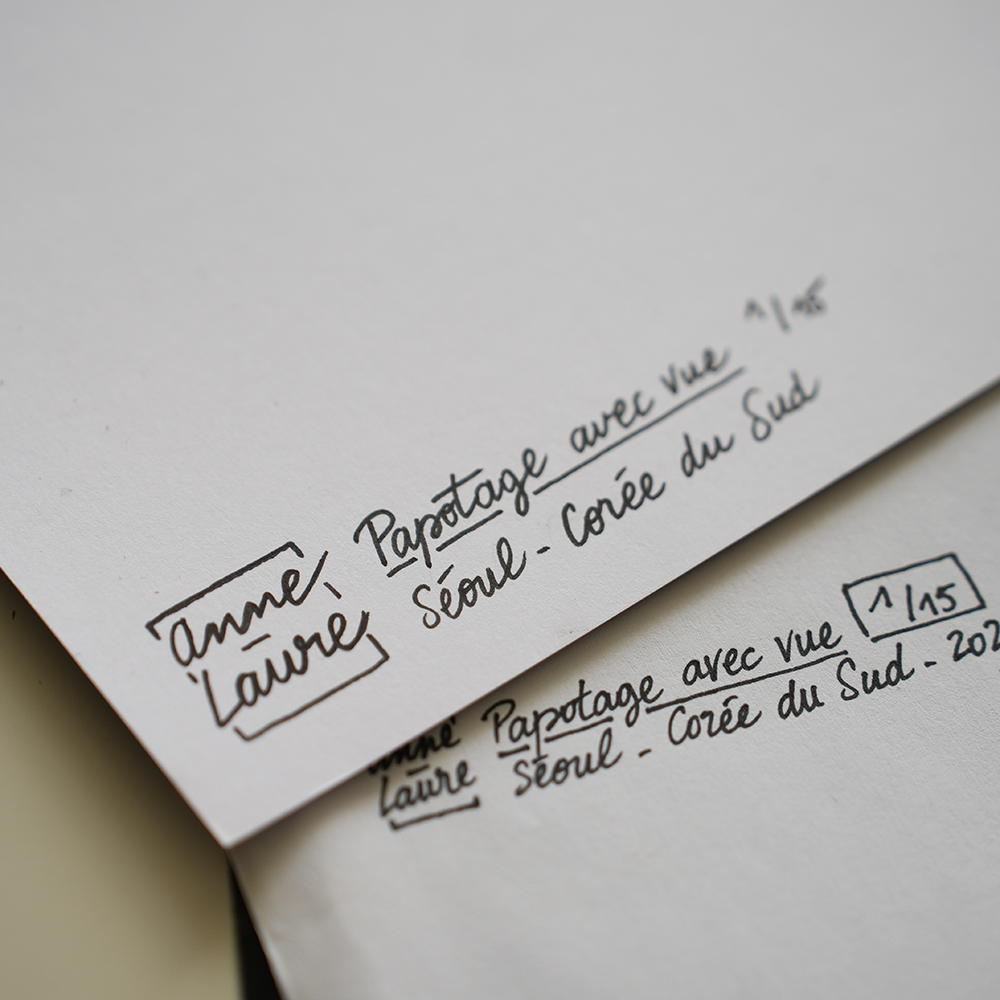 anne Papotage avec vue 1/15
Laure Séoul - Corée du Sud
anne Papotage avec vue 1/15
Laure Séoul - Corée du Sud - 202